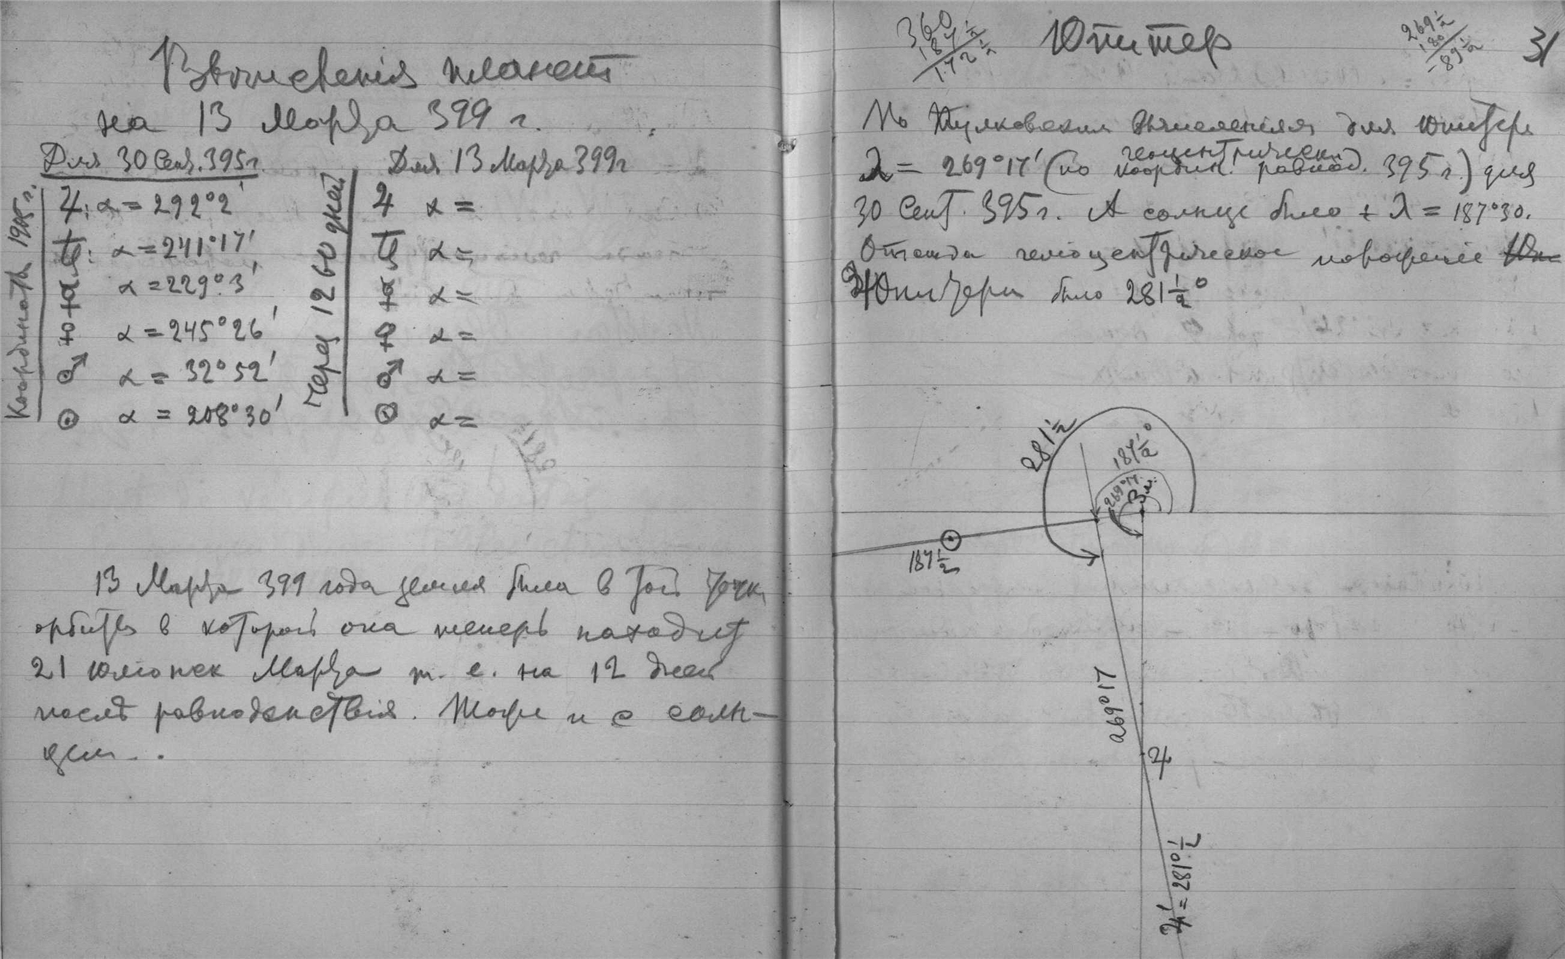 Вычисленія планет
на 13 Марта 399 г.
Для 30 Сент. 395 г.
Координаты 1905 г.
♃: α = 292°2'
♄: α = 241°17'
☿ α = 229°3'
♀ α = 245°26'
♂ α = 32°52'
☉ α = 208°30'
Через 1260 дней
Для 13 Марта 399 г
♃ α =
♄ α =
☿ α =
♀ α =
♂ α =
☉ α =
13 Марта 399 года земля была в той точкѣ
орбиты в которой она теперь находит
21 Марта т. е. на 12 дней
послѣ равноденствія. Тоже и с солн-
цем...
360
187½
172½
Юпитер
269½
180
-89½
31
По Пулковским вычисленіям для Юпитера
геоцентрически
λ = 269°17' (по коордін. равнод. 395 г.) для
30 Сент. 395 г. А солнце было + λ = 187°30.
Отсюда геліоцентрическое положеніе
Юпитера было 281½°
281½
187½°
269°17'
Зм.
187½
269°17
♃
♃ = 281½°